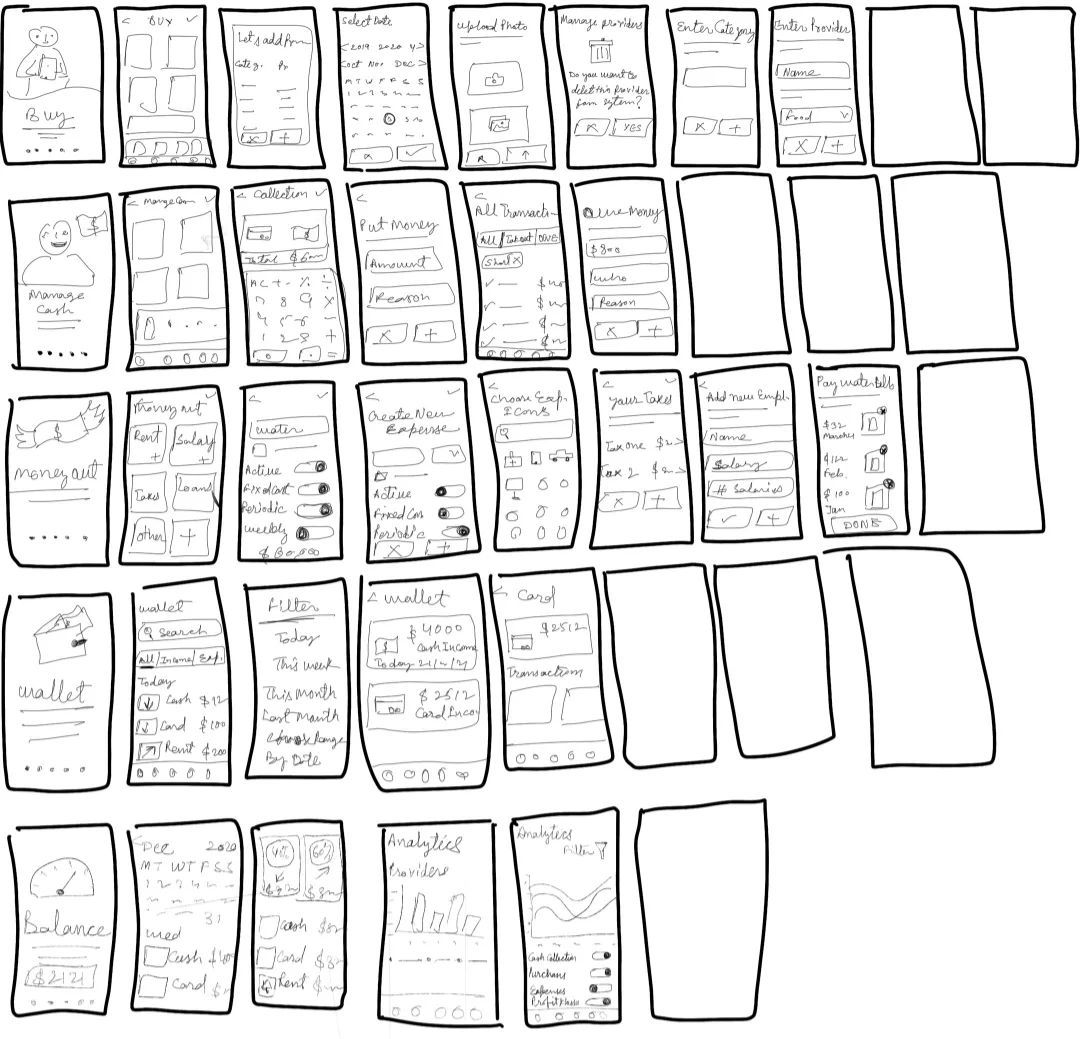 Buy
< BUY ✓
Let's add from
Categ. Pr
X +
Select Date
< 2019 2020 >
< oct Nov DEC >
M T W T F S S
x ✓
Upload Photo
x ↑
Manage providers
Do you want to
delet this provider
from system?
x YES
Enter Category
x +
Enter Provider
Name
Food ∨
X +
$
Manage
Cash
< Mange Cas ✓
< Collection ✓
Total $
AC + - % ÷
7 8 9 X
4 5 6 -
1 2 3 +
0 . =
<
Put Money
Amount
Reason
x +
<
All Transacti-
All / Take out / OWE
Short X
✓ — $
✓ — $
✓ — $
✓ — $
Owe Money
$800
who
Reason
x +
$
money out
Money out ✓
Rent +
Salary +
Taxes
Loans
Other
+
< ✓
water
Active
Fixed Cost
Periodic
weekly
$80,000
< ✓
Create New
Expense
Active
Fixed Cos
Periodic
X +
<
Choose Exp.
Icons
< ✓
Your Taxes
Tax one $2>
Tax 2 $
x +
< ✓
Add new Empl.
Name
Salary
# Salaries
✓ +
Pay water Bills
$32
March
$112
Feb.
$100
Jan
DONE
wallet
wallet
Search
All / Income / Exp.
Today
Cash $12
Card $100
Rent $200
Filter
Today
This week
This Month
Last Month
Choose Range
By Date
< wallet
$ 4000
$ Cash Income
Today
$ 2512
Card Inco
< Card
$2512
Transaction
Balance
$2121
< Dec 2020
M T W T F S S
31
Wed
Cash $40
Card $
40% 60%
Cash $
Card $
Rent $
Analytics
Providers
Analytics
Filter
Cash Collection
Purchase
Expenses
Profit